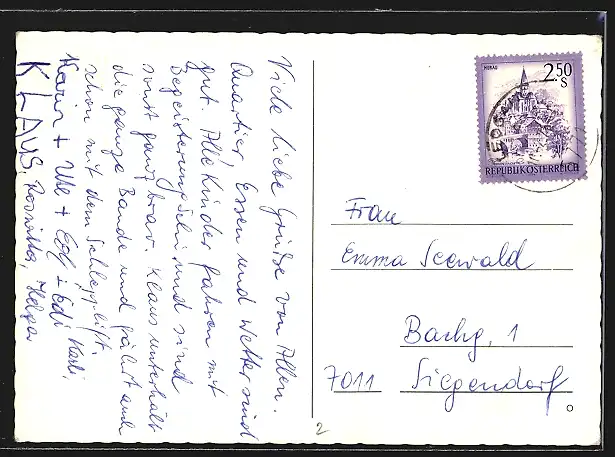 Viele liebe Grüße von Allen.
Quartier, Essen und Wetter sind
gut. Alle Kinder fahren mit
Begeisterung Schi und sind
sonst ganz brav. Klaus unterhält
die ganze Bande und fährt auch
schon mit dem Schlepplift.
Karin + Ute + Edi Karli,
KLAUS, Roswitha, Helga
MURAU
2.50
S
REPUBLIK ÖSTERREICH
Frau
Emma Seewald
Bachg. 1
7011 Siegendorf
2